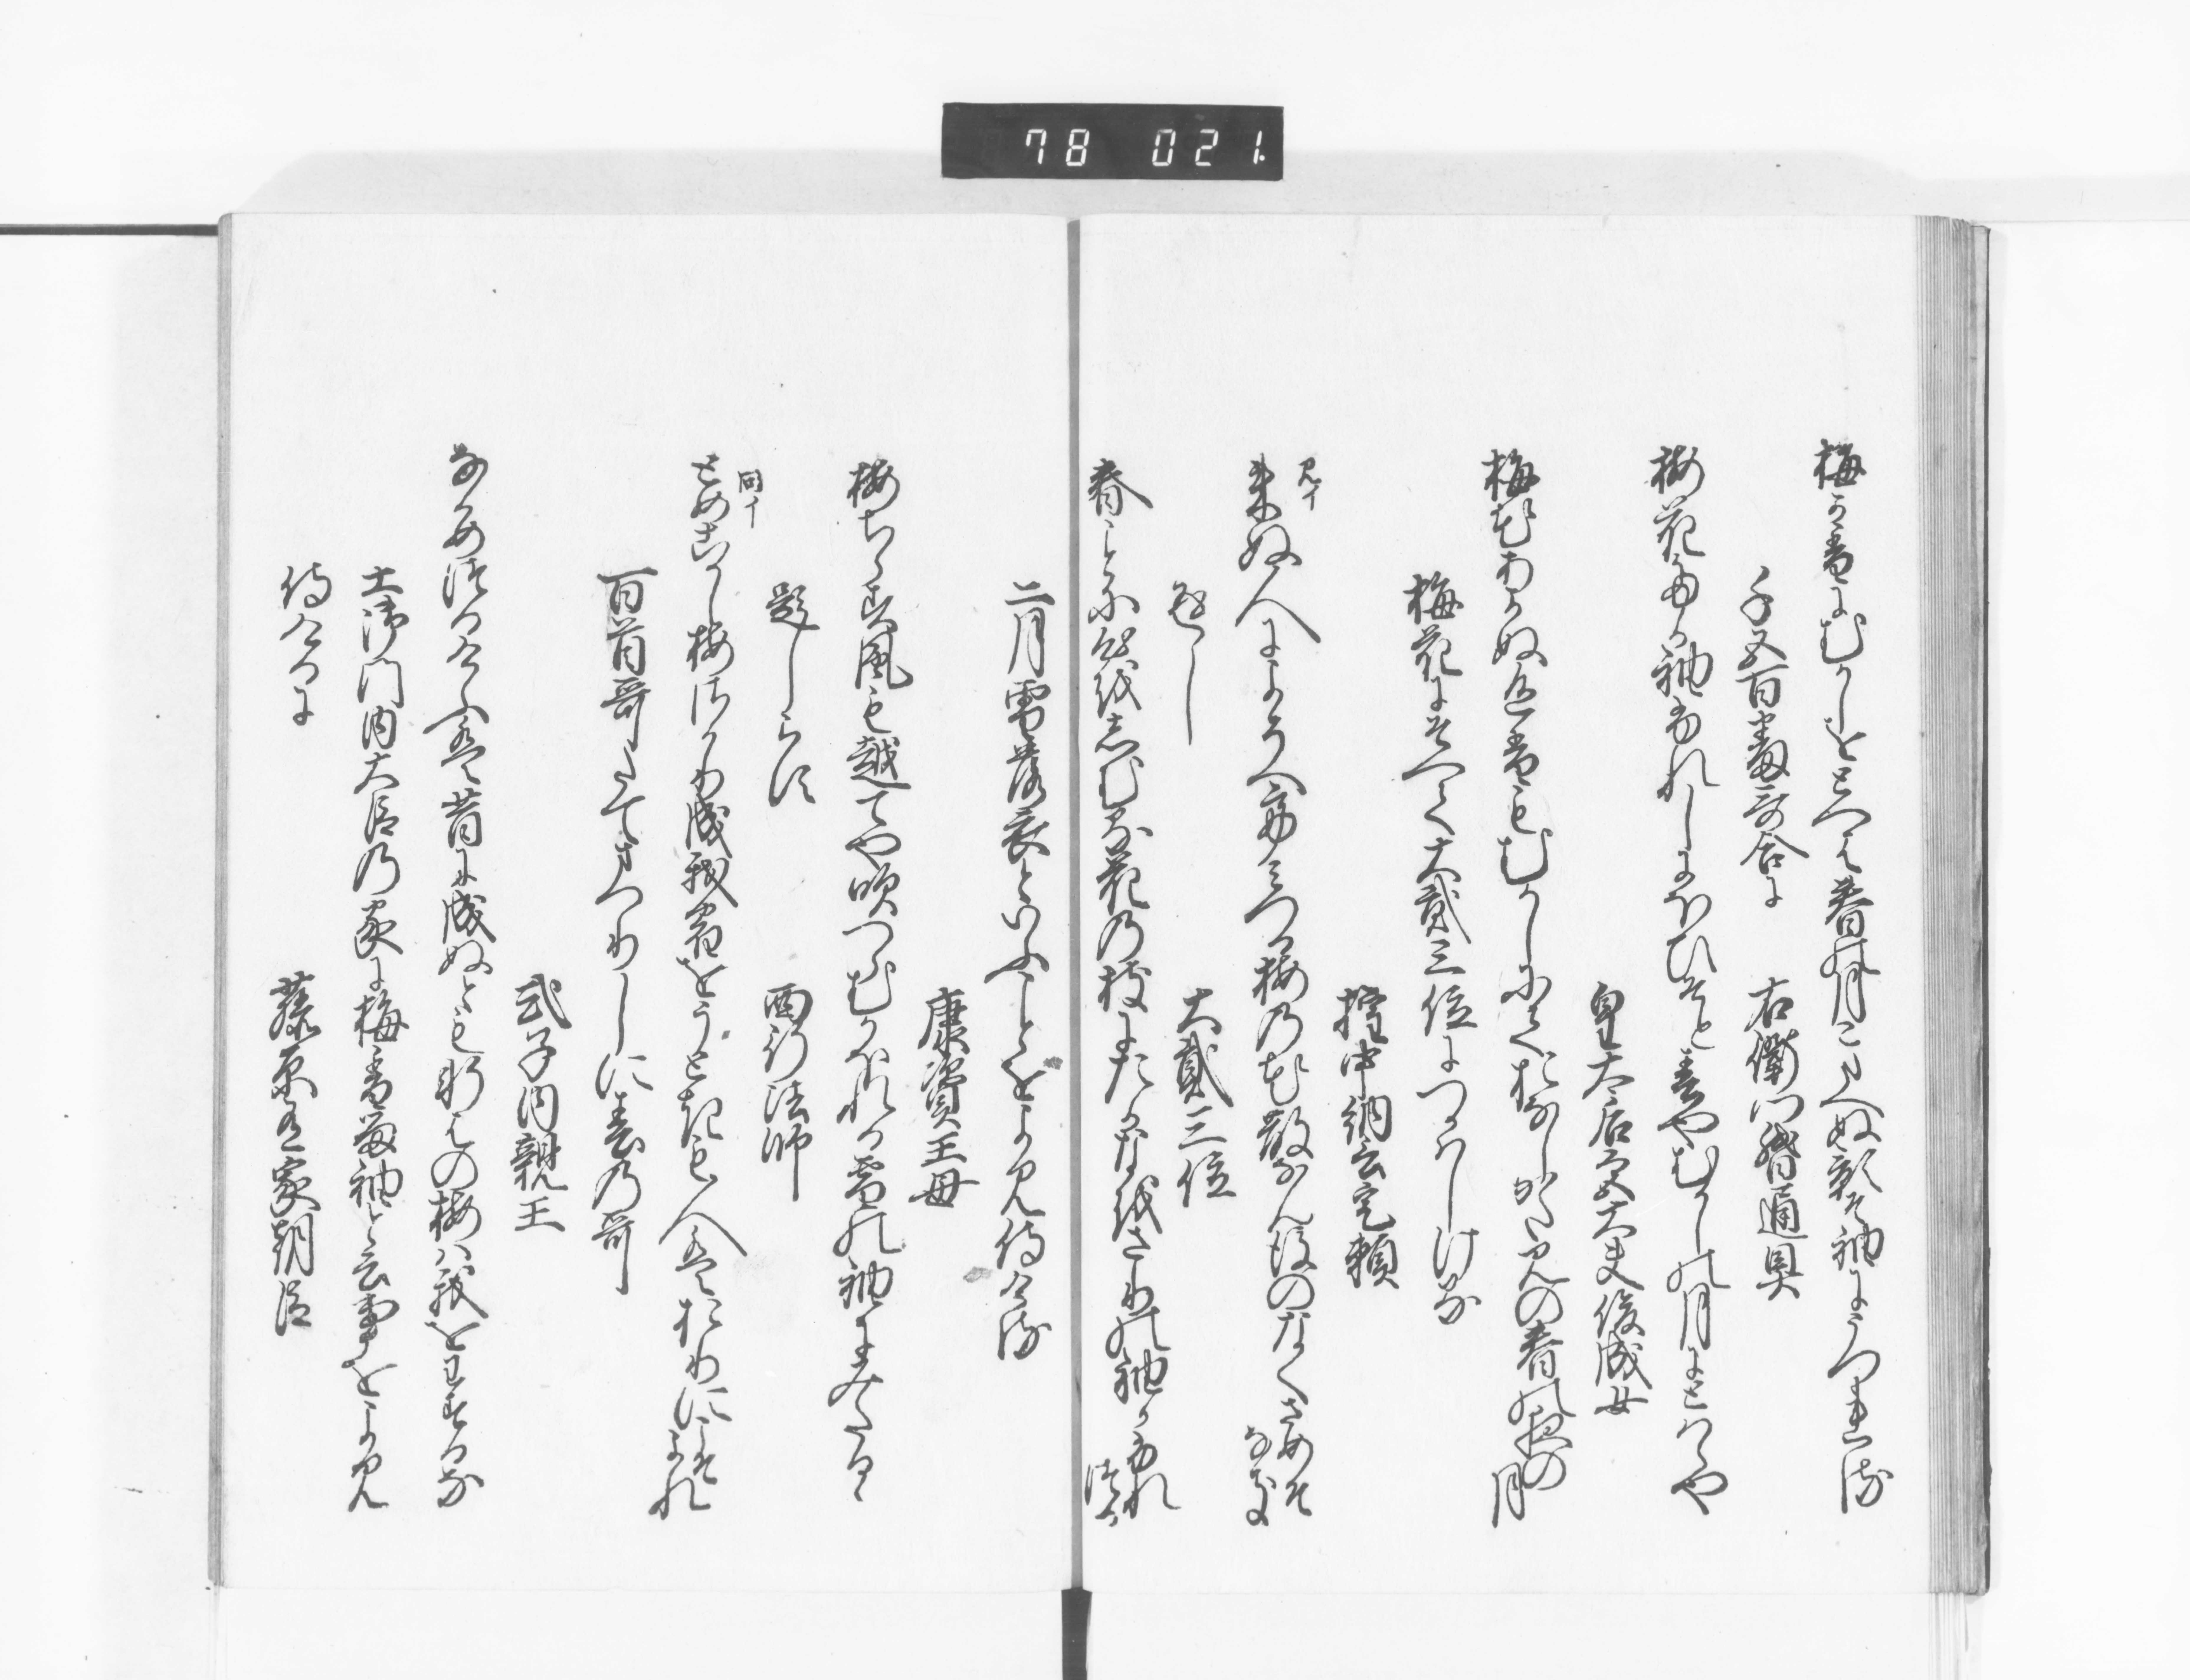 78 021.
梅か香にむかしをとへは春月こたへぬ影そ袖にうつれる
千五百番哥合に
右衛門督通具
梅花たか袖ふれしにほひそと春やむかしの月にとはゝや
皇太后宮大夫俊成女
梅花あかぬ色香もむかしにておなしかたみの春の夜の月
梅花にそへて大貳三位につかはしける
権中納言定頼
見イ
来ぬ人によそへてみつる梅の花散なん後のなくさめそなき
返し
大貳三位
春ことに心をしむる花の枝にたかなをさりの袖かふれつる
二月雪落衣といふことをよみ侍ける
康資王母
梅ちらす風も越てや吹つらむかほれる雪の袖にみたるゝ
題しらす
西行法師
同イ
とめこかし梅さかりなる我宿をうときも人はおりにこそよれ
百首哥たてまつりしに春乃哥
式子内親王
なかめつるけふは昔に成ぬとも軒はの梅は我をわするな
土御門内大臣乃家に梅香留袖と云事をよみ
侍けるに
藤原有家朝臣